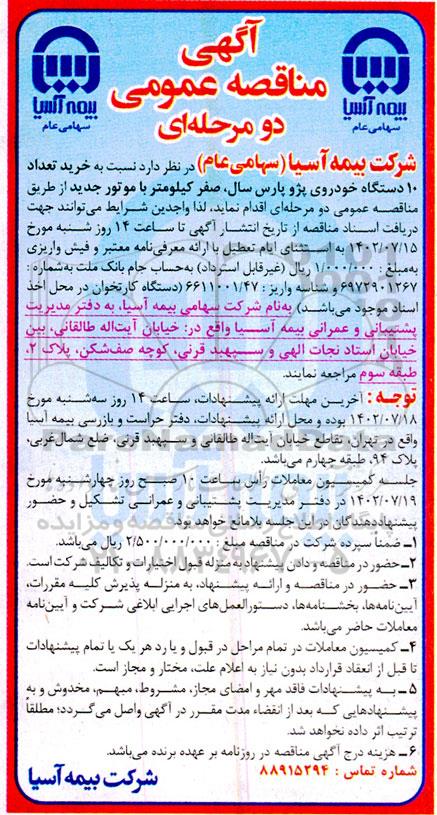 آگهی
مناقصه عمومی
دو مرحله‌ای
بیمه آسیا
سهامی عام
بیمه آسیا
سهامی عام
شرکت بیمه آسیا (سهامی عام) در نظر دارد نسبت به خرید تعداد
۱۰ دستگاه خودروی پژو پارس سال، صفر کیلومتر با موتور جدید از طریق
مناقصه عمومی دو مرحله‌ای اقدام نماید، لذا واجدین شرایط می‌توانند جهت
دریافت اسناد مناقصه از تاریخ انتشار آگهی تا ساعت ۱۴ روز شنبه مورخ
۱۴۰۲/۰۷/۱۵ به استثنای ایام تعطیل با ارائه معرفی‌نامه معتبر و فیش واریزی
به‌مبلغ : ۱/۰۰۰/۰۰۰ ریال (غیرقابل استرداد) به‌حساب جام بانک ملت به‌شماره :
۶۹۷۲۹۰۱۲۶۷ و شناسه واریز : ۶۶۱۱۰۰۱/۴۷ (دستگاه کارتخوان در محل اخذ
اسناد موجود می‌باشد) به‌نام شرکت سهامی بیمه آسیا، به دفتر مدیریت
پشتیبانی و عمرانی بیمه آسیا واقع در: خیابان آیت‌اله طالقانی، بین
خیابان استاد نجات الهی و سپهبد قرنی، کوچه صف‌شکن، پلاک ۲،
طبقه سوم مراجعه نمایند.
توجه : آخرین مهلت ارائه پیشنهادات، ساعت ۱۴ روز سه‌شنبه مورخ
۱۴۰۲/۰۷/۱۸ بوده و محل ارائه پیشنهادات، دفتر حراست و بازرسی بیمه آسیا
واقع در تهران، تقاطع خیابان آیت‌اله طالقانی و سپهبد قرنی، ضلع شمال‌غربی،
پلاک ۹۴، طبقه چهارم می‌باشد.
جلسه کمیسیون معاملات رأس ساعت ۱۰ صبح روز چهارشنبه مورخ
۱۴۰۲/۰۷/۱۹ در دفتر مدیریت پشتیبانی و عمرانی تشکیل و حضور
پیشنهاددهندگان در این جلسه بلامانع خواهد بود.
۱ـ ضمنا سپرده شرکت در مناقصه مبلغ : ۲/۵۰۰/۰۰۰/۰۰۰ ریال می‌باشد.
۲ـ حضور در مناقصه و دادن پیشنهاد به منزله قبول اختیارات و تکالیف شرکت است.
۳ـ حضور در مناقصه و ارائه پیشنهاد، به منزله پذیرش کلیه مقررات،
آیین‌نامه‌ها، بخشنامه‌ها، دستورالعمل‌های اجرایی ابلاغی شرکت و آیین‌نامه
معاملات حاضر می‌باشد.
۴ـ کمیسیون معاملات در تمام مراحل در قبول و یا رد هر یک یا تمام پیشنهادات
تا قبل از انعقاد قرارداد بدون نیاز به اعلام علت، مختار و مجاز است.
۵ ـ به پیشنهادات فاقد مهر و امضای مجاز، مشروط، مبهم، مخدوش و به
پیشنهادهایی که بعد از انقضاء مدت مقرر در آگهی واصل می‌گردد؛ مطلقا
ترتیب اثر داده نخواهد شد.
۶ـ هزینه درج آگهی مناقصه در روزنامه بر عهده برنده می‌باشد.
شماره تماس : ۸۸۹۱۵۲۹۴
شرکت بیمه آسیا